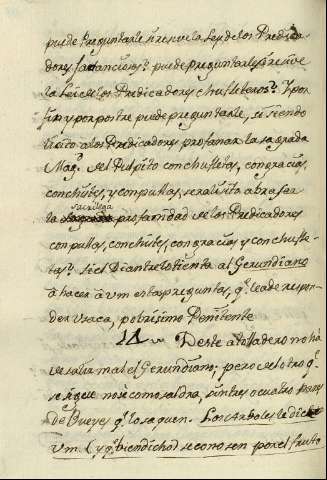 puede preguntarle si renueva la ley de los Predica-
dores farsanciones? puede preguntarle si renueve
la ley de los Predicadores chufleteros? Y por
fin y por postre puede preguntarle, si siendo
licito a los Predicadores profanar la sagrada
Mag.d del Pulpito con chufletas, con gracias,
con chistes, y con pullas, sera licito abrasar
la sacrilega profanidad de los Predicadores
con pullas, con chistes, con gracias, y con chufle-
tas? Si el Diantre lo tienta al Gerundiano
à hacer à Vm estas preguntas, q.e le ha de respon-
der Vraca, pobrisimo Penitente
De este atolladero no ha
de salir mal el Gerundiano; pero de el otro q.e
se sigue no sè como saldrà, sin tres o cuatro pares
de Bueyes q.e lo saquen. Los Arboles le dice
Vm. (y q.e bien dicho) se conosen por el fruto